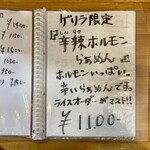 ゲリラ限定
辛辣ホルモン
らぁめん
ホルモンいっぱい。
辛いらぁめんです。
ライスオーダーがマスト!!
¥1100-